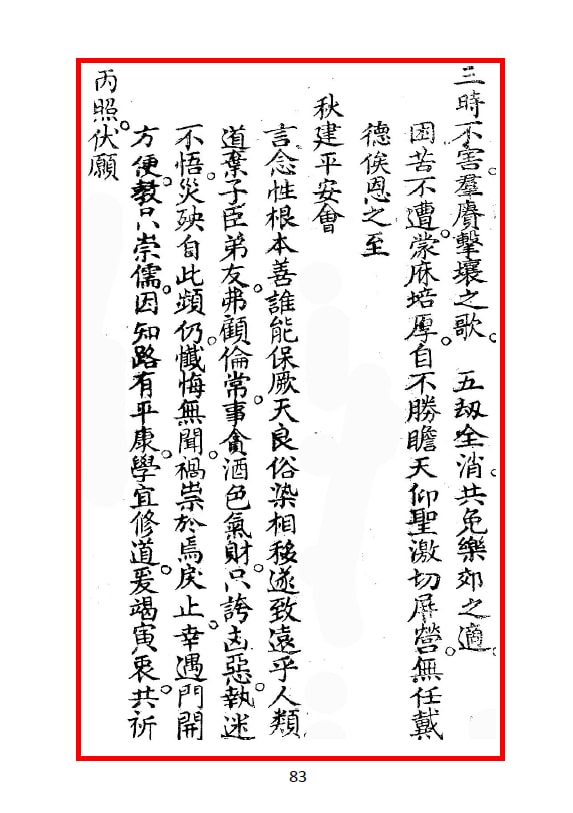 三時不害。羣賡擊壤之歌。 五刼全消。共免樂郊之適。
困。苦不遭蒙庥培厚。自不勝瞻天仰聖激切屏營。無任戴
德俟恩之至
秋建平安會
言念性根本善誰能保厥天良俗染相移遂致遠乎人類
道棄子臣弟友。弗顧倫常。事貪酒色氣財。只誇凶惡。執迷
不悟。災殃自此頻仍。懺悔無聞。禍祟於焉戾止。幸遇門開
方便。教只崇儒。因知路有平康。學宜修道。爰竭寅衷。共祈
丙照。伏願
83